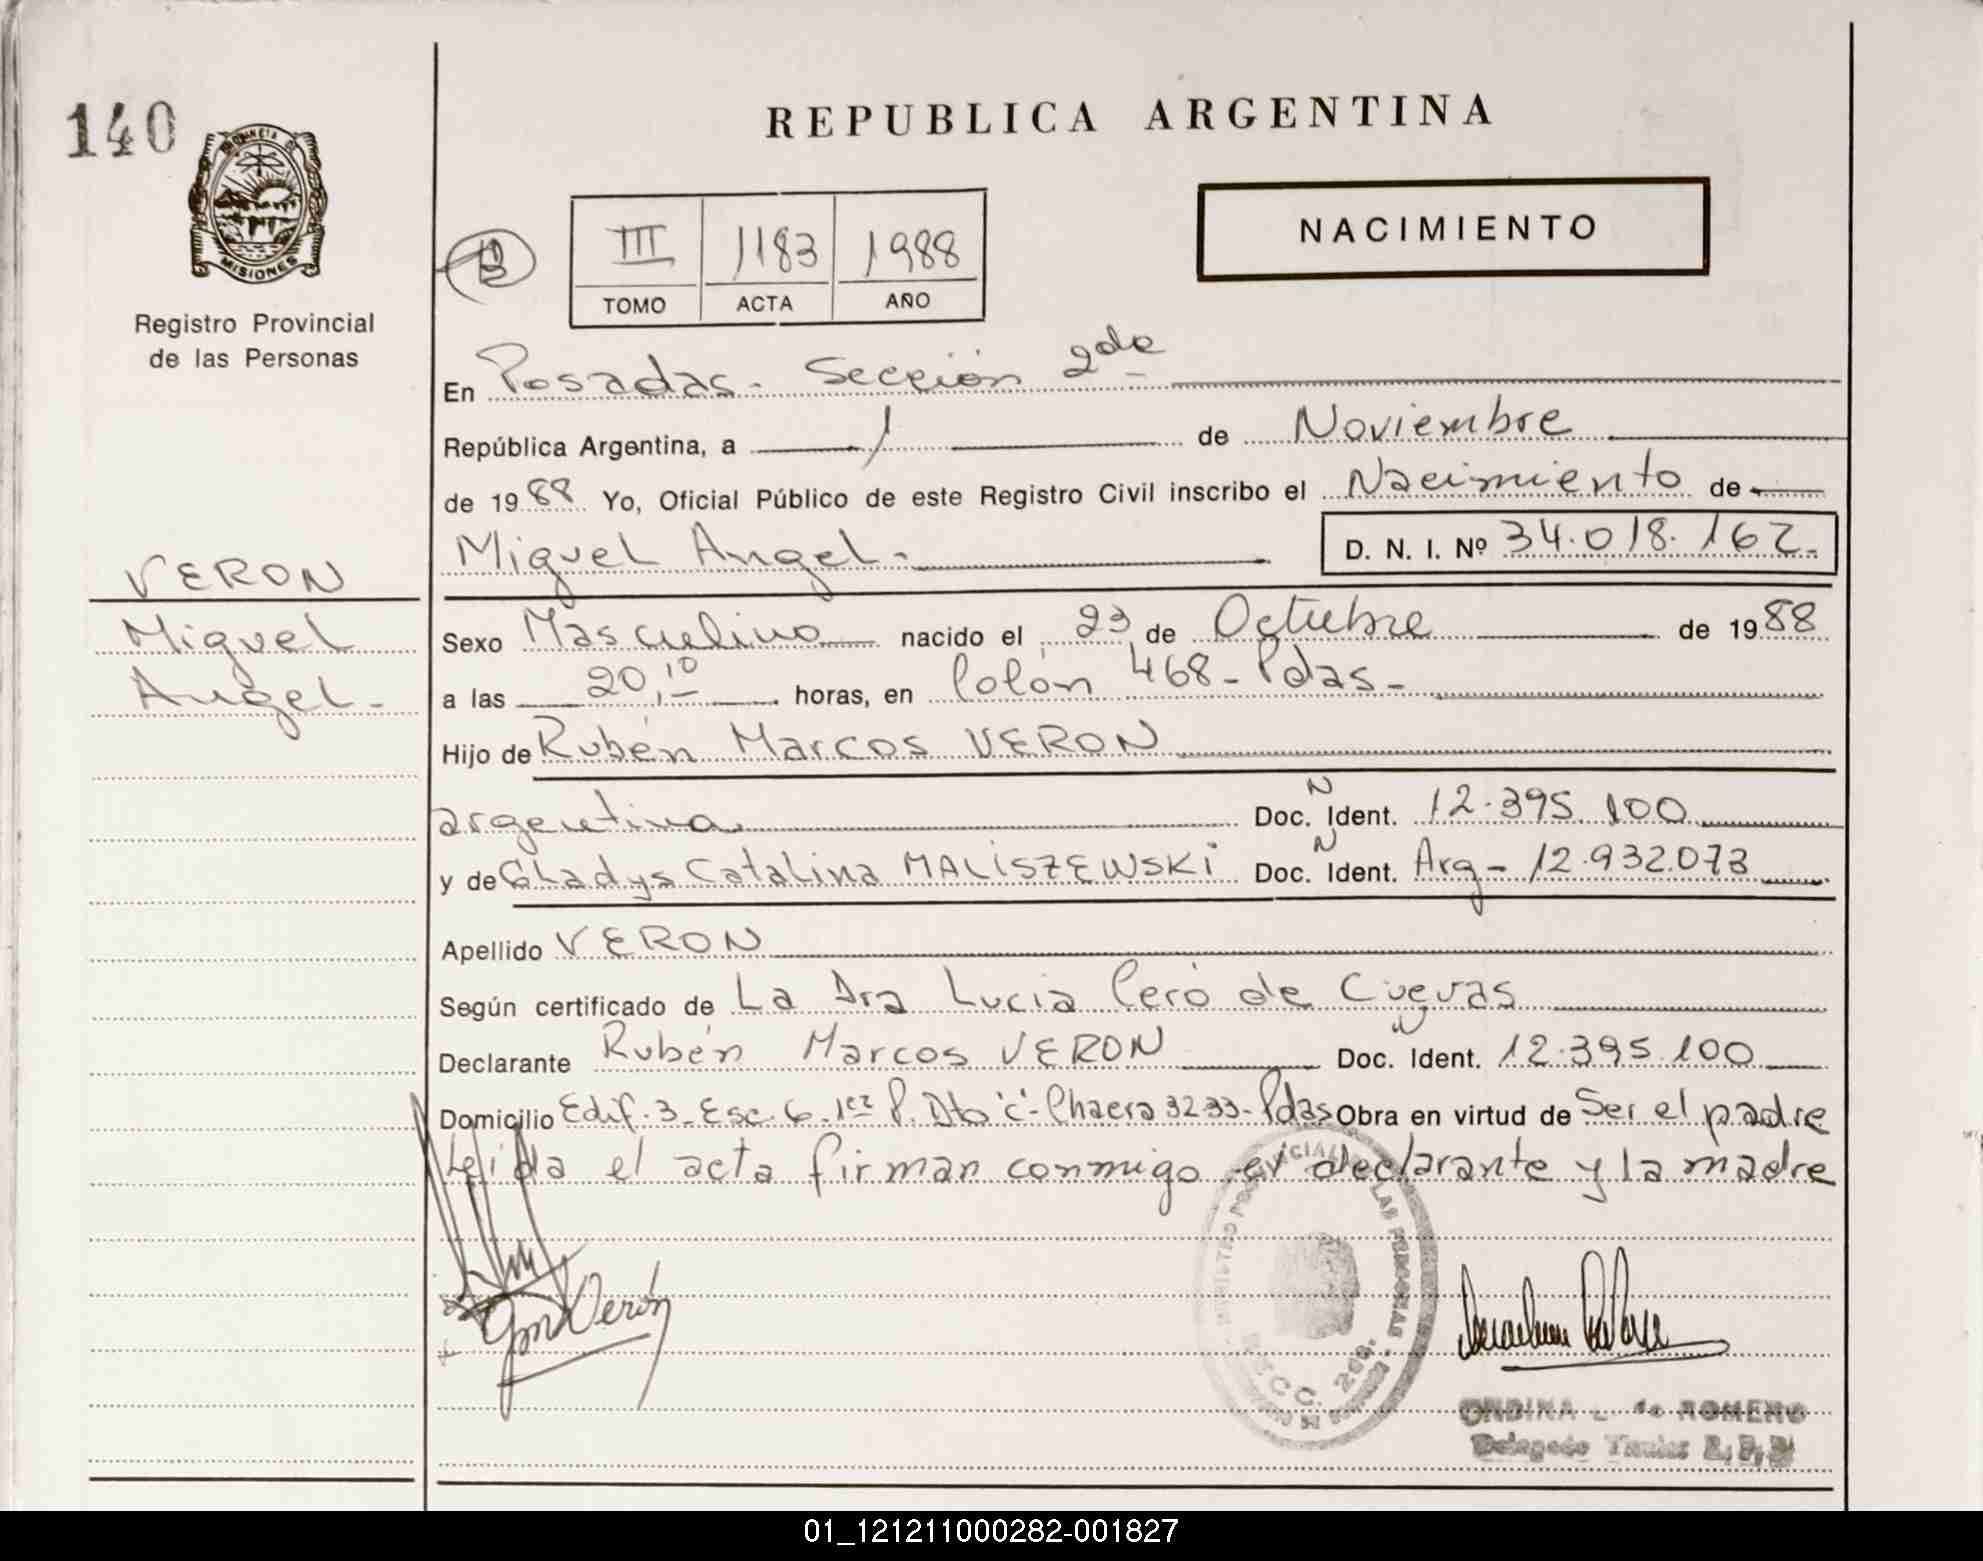 140
REPUBLICA ARGENTINA
PROVINCIA DE
MISIONES
Registro Provincial
de las Personas
III 1183 1988
TOMO ACTA AÑO
NACIMIENTO
En Posadas - Sección 2da
República Argentina, a 1 de Noviembre
de 1988 Yo, Oficial Público de este Registro Civil inscribo el Nacimiento de
Miguel Angel - D. N. I. Nº 34.018.162-
VERON
Miguel
Angel -
Sexo Masculino nacido el 23 de Octubre de 1988
a las 20,10 horas, en Colón 468 - Pdas -
Hijo de Rubén Marcos VERON
argentina Doc. N Ident. 12.395.100
y de Gladys Catalina MALISZEWSKI Doc. N Ident. Arg - 12.932.073
Apellido VERON
Según certificado de La Dra Lucia Peró de Cuevas
Declarante Rubén Marcos VERON Doc. N Ident. 12.395.100
Domicilio Edif. 3 - Esc. 6 - 1er P. Dto "C" - Chacra 32-33 - Pdas Obra en virtud de Ser el padre
Leida el acta firman conmigo el declarante y la madre
Verón
SECC. 2da.
ONDINA de ROMERO
Delegado Titular R.P.P.
01_121211000282-001827